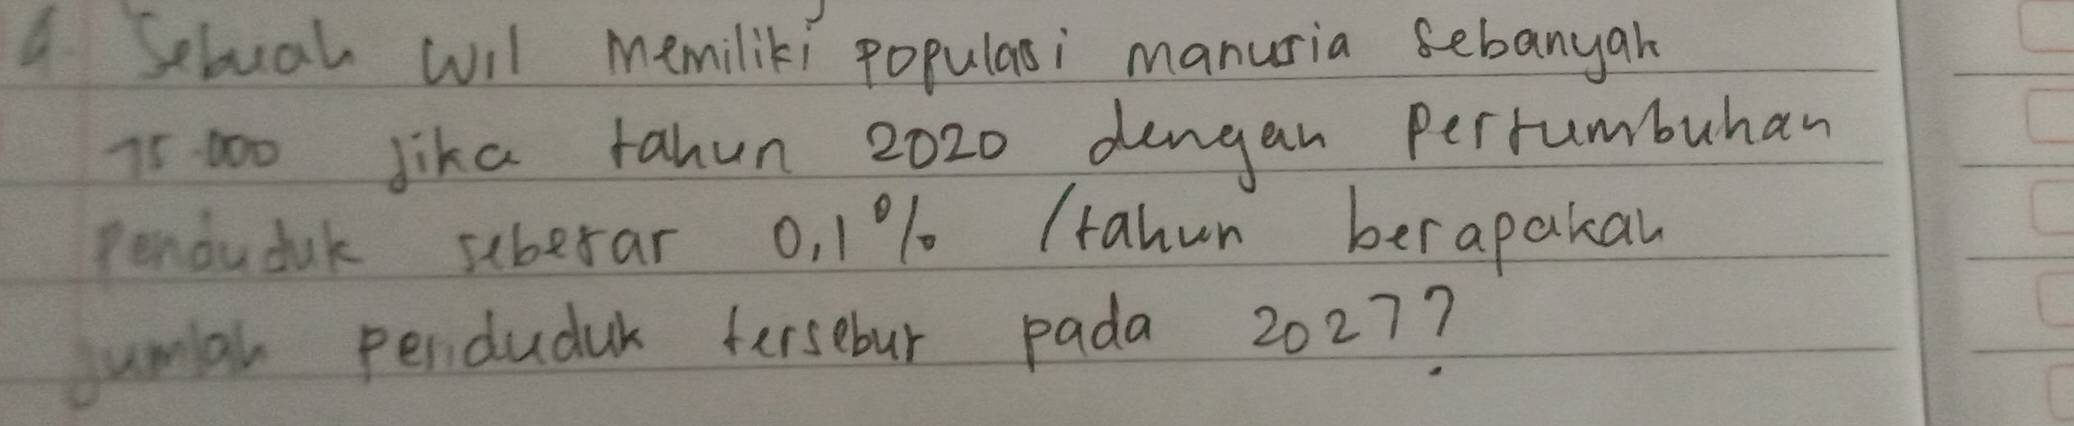 4. Sebuah Wil memiliki populasi manusia sebanyak
75.000 Jika tahun 2020 dengan Pertumbuhan
Penduduk sebesar 0,1% /tahun berapakah
jumlah penduduk tersebut pada 2027?